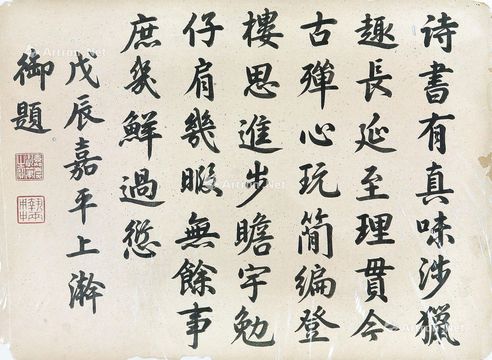 诗書有真味涉獵
趣長延至理貫今
古殫心玩簡編登
樓思進步瞻宇勉
仔肩幾暇無餘事
庶幾鮮過愆
戊辰嘉平上澣
御題